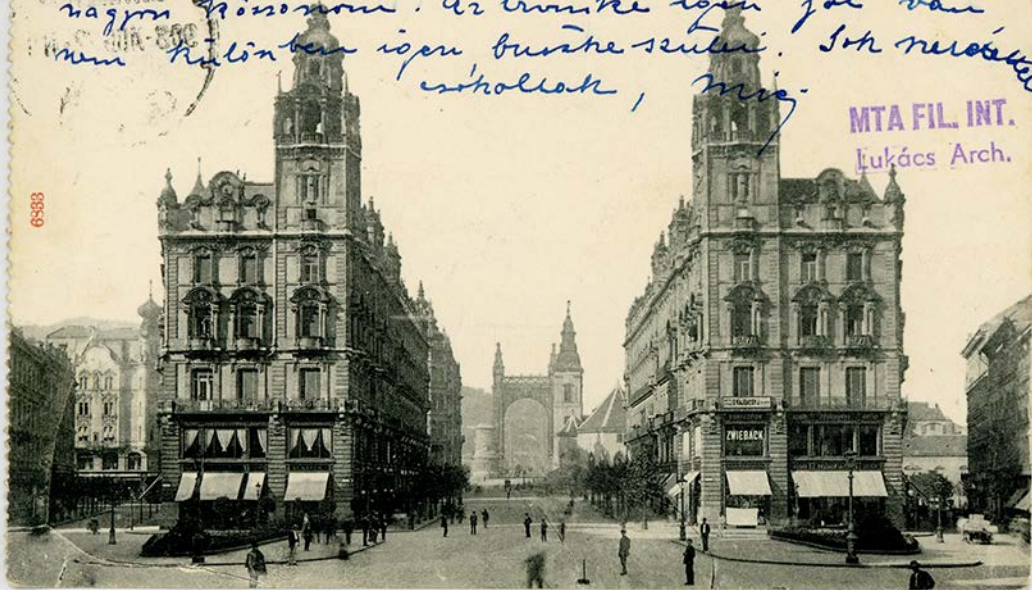 nagyon köszönöm. Az Ervinke igen jól van
nem különben igen büszke szülei. Sok
csókollak, Mici
MTA FIL. INT.
Lukács Arch.
6833
ZWIEBACK